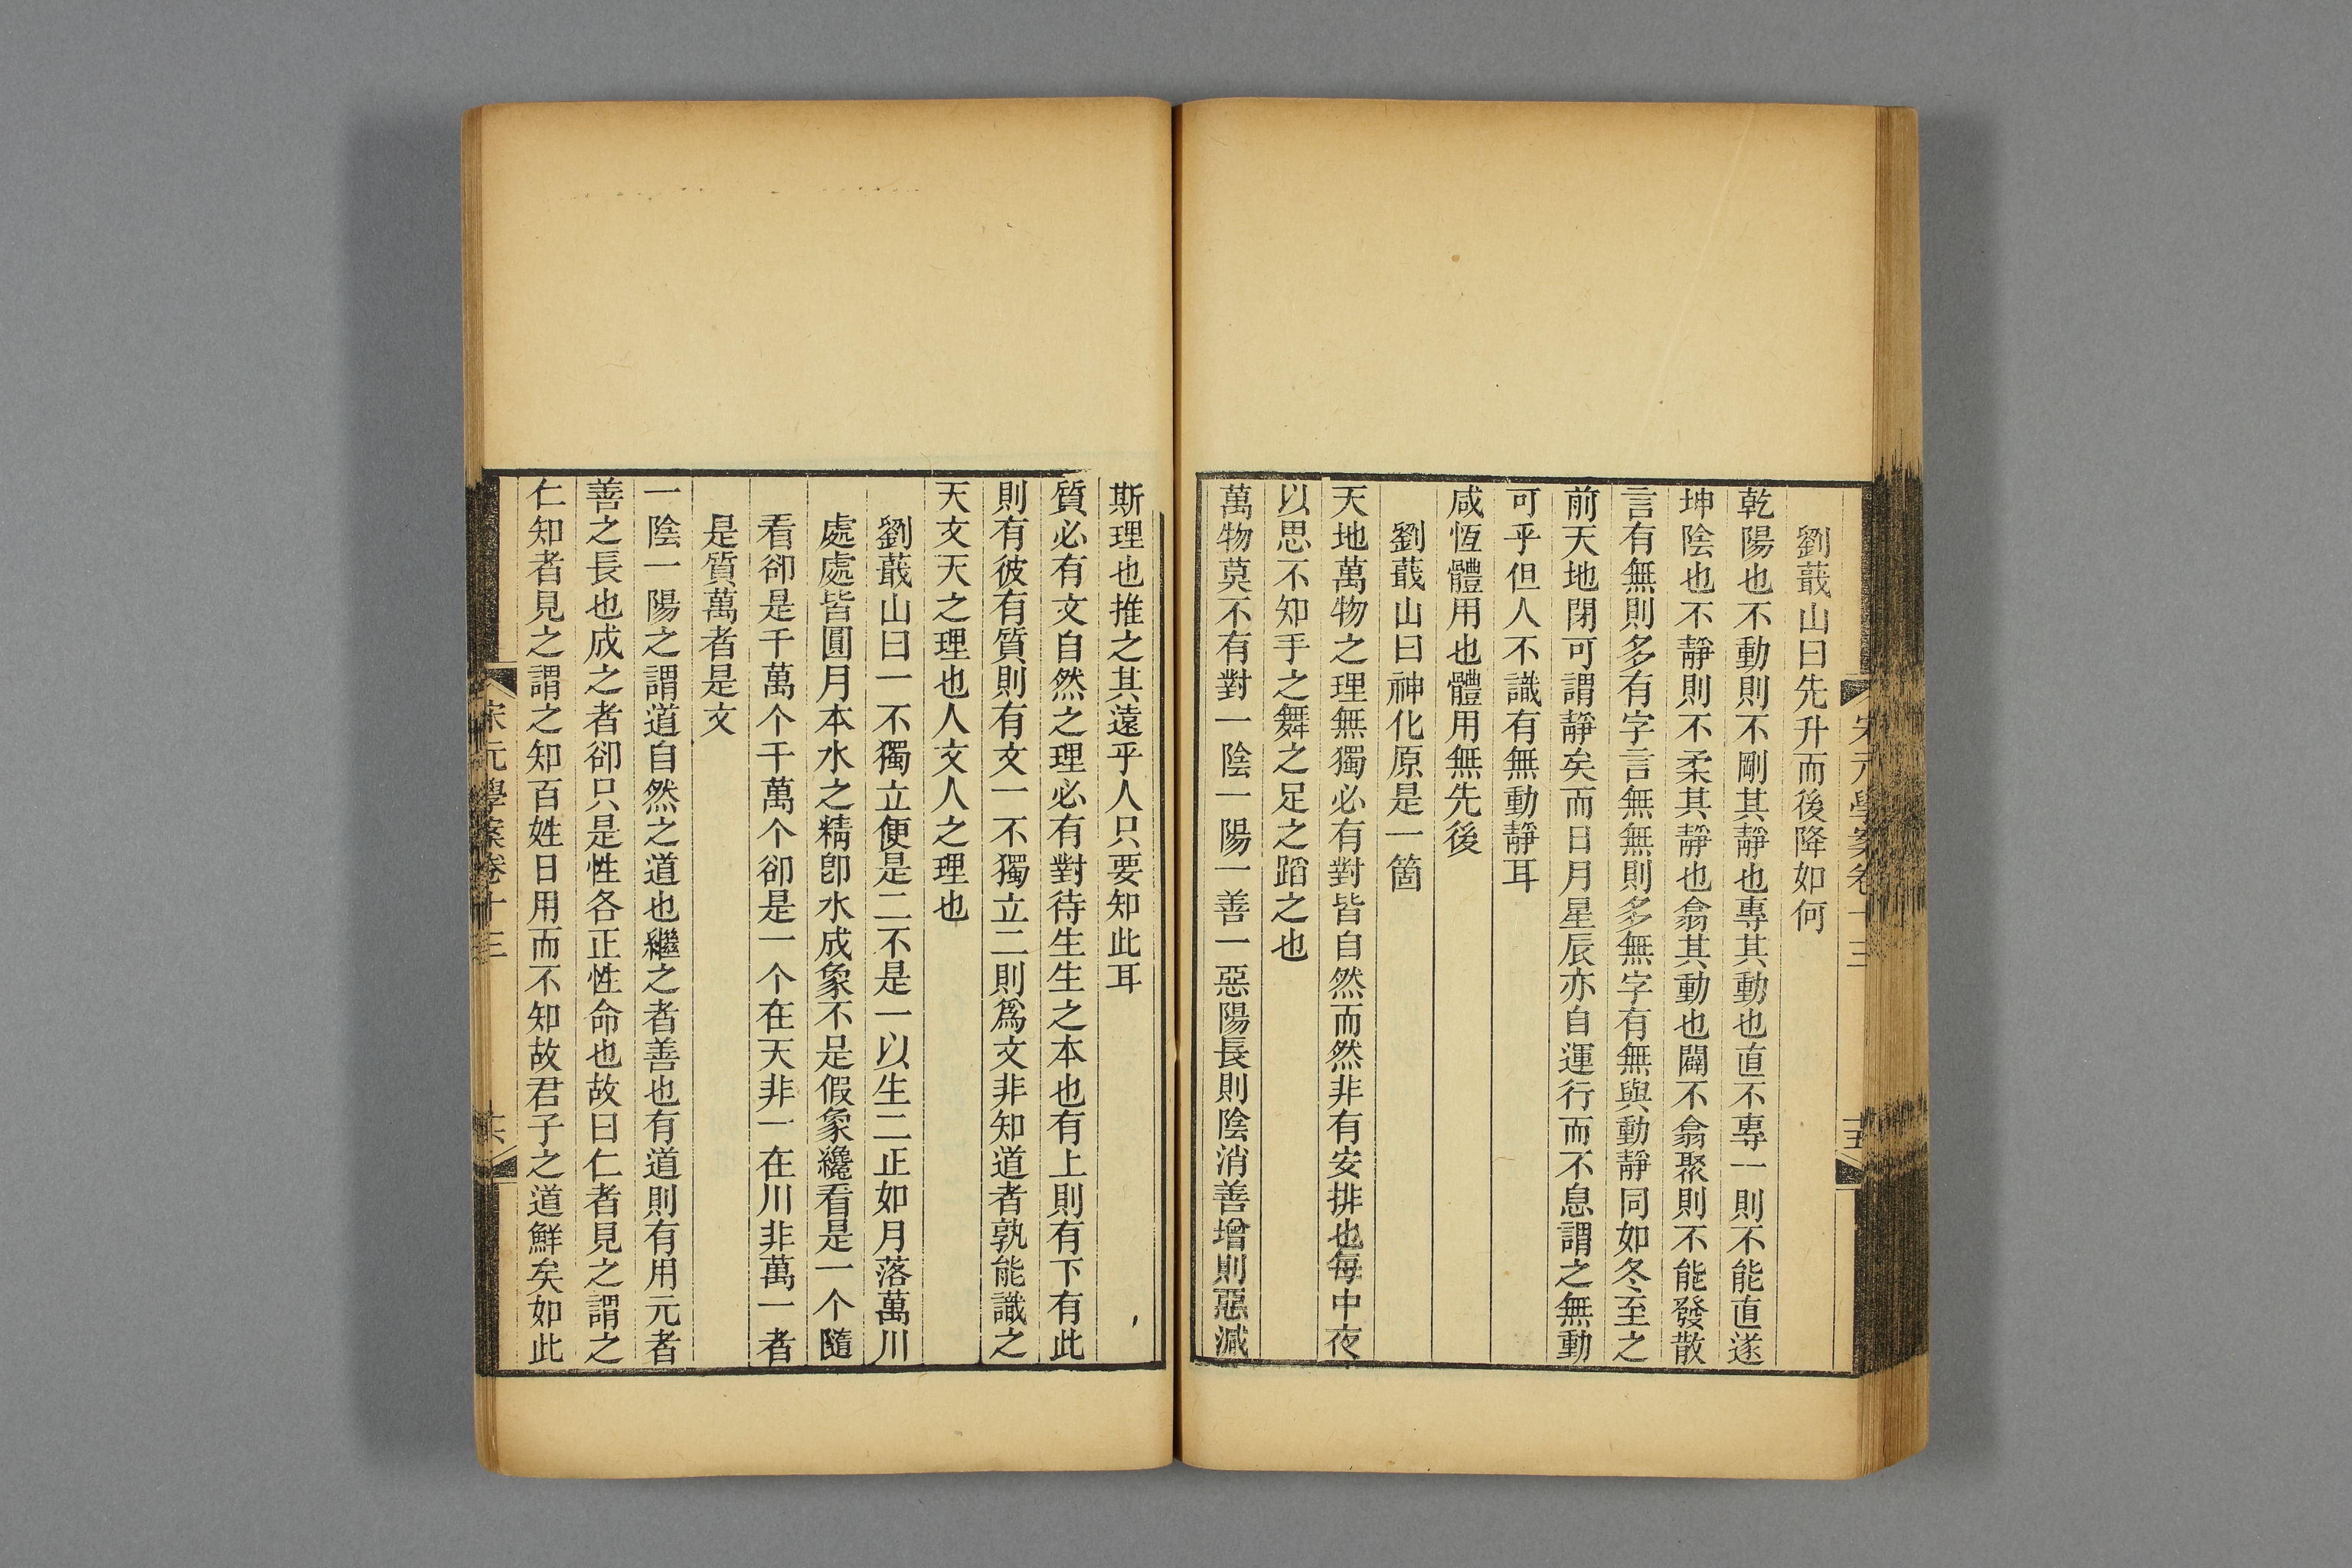 宋元學案卷十三
十五
劉蕺山曰先升而後降如何
乾陽也不動則不剛其靜也專其動也直不專一則不能直遂
坤陰也不靜則不柔其靜也翕其動也闢不翕聚則不能發散
言有無則多有字言無無則多無字有無與動靜同如冬至之
前天地閉可謂靜矣而日月星辰亦自運行而不息謂之無動
可乎但人不識有無動靜耳
咸恆體用也體用無先後
劉蕺山曰神化原是一箇
天地萬物之理無獨必有對皆自然而然非有安排也每中夜
以思不知手之舞之足之蹈之也
萬物莫不有對一陰一陽一善一惡陽長則陰消善增則惡減
斯理也推之其遠乎人只要知此耳
質必有文自然之理必有對待生生之本也有上則有下有此
則有彼有質則有文一不獨立二則爲文非知道者孰能識之
天文天之理也人文人之理也
劉蕺山曰一不獨立便是二不是一以生二正如月落萬川
處處皆圓月本水之精卽水成象不是假象纔看是一个隨
看卻是千萬个千萬个卻是一个在天非一在川非萬一者
是質萬者是文
一陰一陽之謂道自然之道也繼之者善也有道則有用元者
善之長也成之者卻只是性各正性命也故曰仁者見之謂之
仁知者見之謂之知百姓日用而不知故君子之道鮮矣如此
宋元學案卷十三
十六